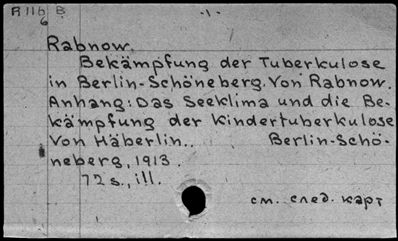 R 116 B -1-
6
Rabnow.
Bekämpfung der Tuberkulose
in Berlin-Schöneberg. Von Rabnow.
Anhang: Das Seeklima und die Be-
kämpfung der Kindertuberkulose
Von Häberlin.. Berlin-Schö-
neberg, 1913.
72 s., ill.
см. след. карт